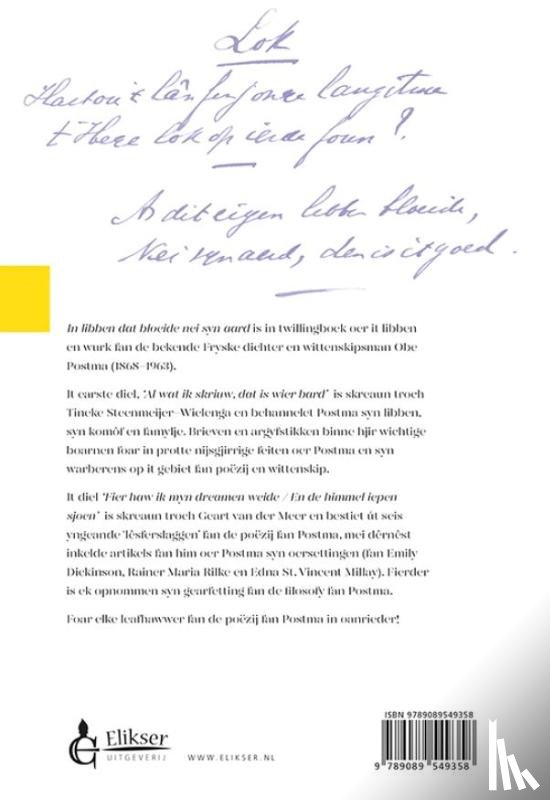 Lok
lân fen jonge langstme
t Hege lok op ierde foun?
As dit eigen libben bloeide,
Nei syn aard, den is it goed.
In libben dat bloeide nei syn aard is in twillingboek oer it libben
en wurk fan de bekende Fryske dichter en wittenskipsman Obe
Postma (1868–1963).
It earste diel, ‘Al wat ik skriuw, dat is wier bard’ is skreaun troch
Tineke Steenmeijer–Wielenga en behannelet Postma syn libben,
syn komôf en famylje. Brieven en argyfstikken binne hjir wichtige
boarnen foar in protte nijsgjirrige feiten oer Postma en syn
warberens op it gebiet fan poëzij en wittenskip.
It diel ‘Fier haw ik myn dreamen weide / En de himmel iepen
sjoen’ is skreaun troch Geart van der Meer en bestiet út seis
yngeande ‘lêsferslaggen’ fan de poëzij fan Postma, mei dêrnêst
inkelde artikels fan him oer Postma syn oersettingen (fan Emily
Dickinson, Rainer Maria Rilke en Edna St. Vincent Millay). Fierder
is ek opnommen syn gearfetting fan de filosofy fan Postma.
Foar elke leafhawwer fan de poëzij fan Postma in oanrieder!
Elikser
UITGEVERIJ
WWW.ELIKSER.NL
ISBN 9789089549358
9 789089 549358